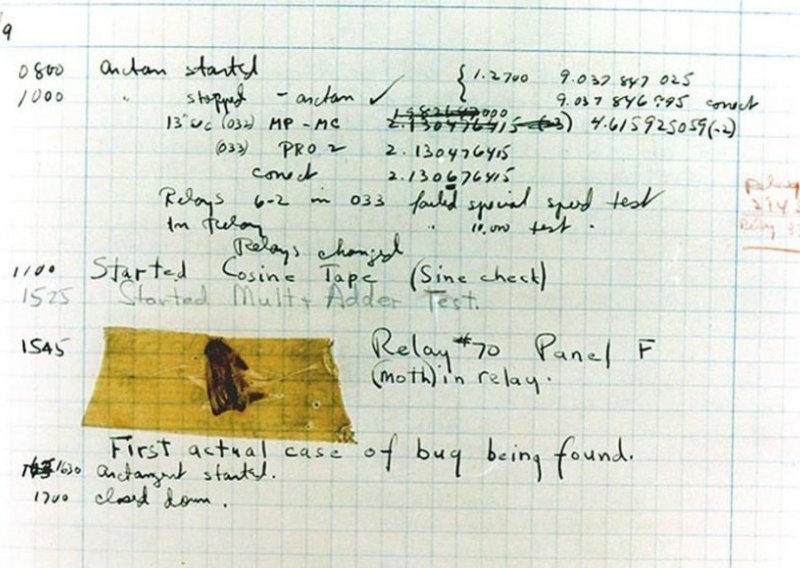 9
0800 arctan started { 1.2700 9.037 847 025
1000 " stopped - arctan ✓ 9.037 846 995 correct
13" sec (032) MP - MC 2.130476415 (-3) 4.615925059(-2)
(033) PRO 2 2.130476415
correct 2.130676415
Relays 6-2 in 033 failed special speed test
In Relay " 10,000 test .
Relays changed
1100 Started Cosine Tape (Sine check)
1525 Started Mult + Adder Test.
1545 Relay #70 Panel F
(moth) in relay.
First actual case of bug being found.
1630 arctangent started.
1700 closed down .